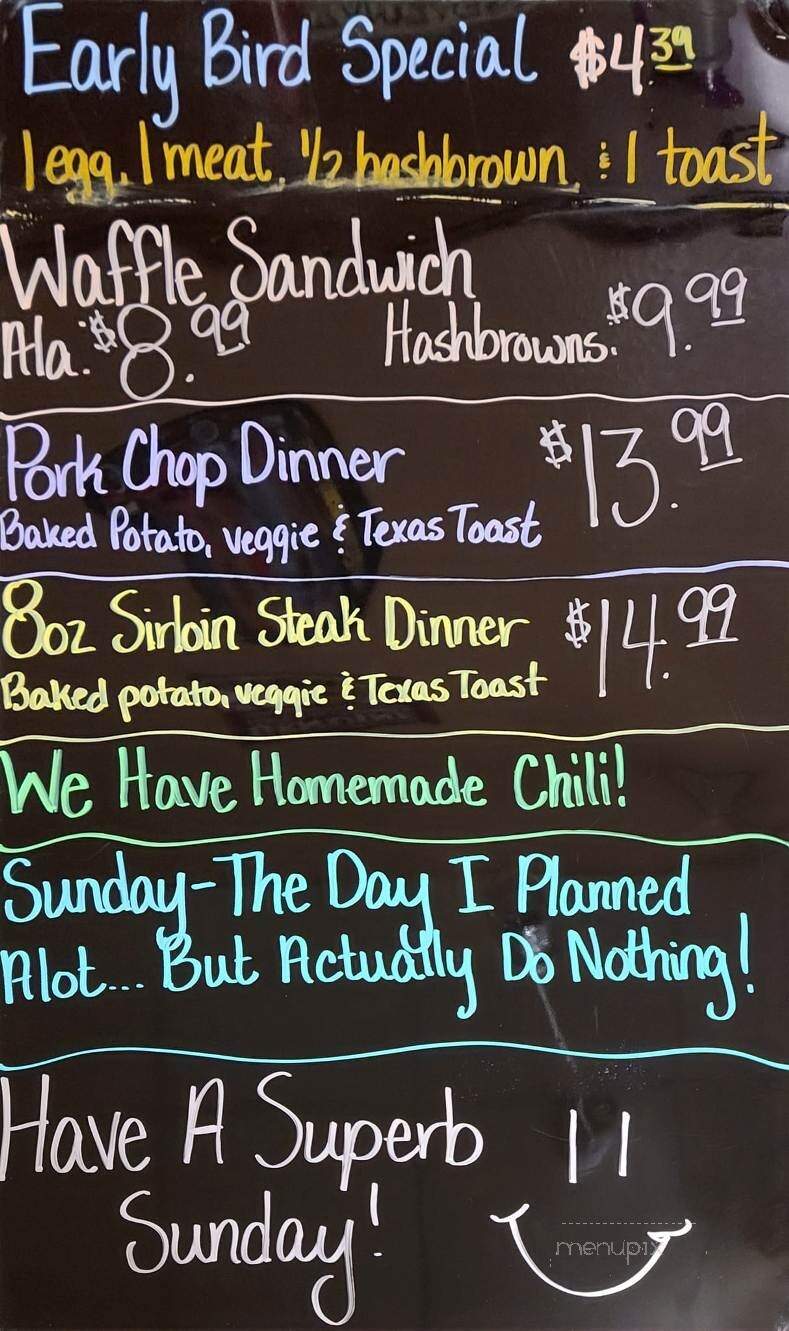 Early Bird Special $4.39
1 egg, 1 meat, 1/2 hashbrown, & 1 toast
Waffle Sandwich
Ala. $8.99 Hashbrowns. $9.99
Pork Chop Dinner $13.99
Baked Potato, veggie & Texas Toast
8oz Sirloin Steak Dinner $14.99
Baked potato, veggie & Texas Toast
We Have Homemade Chili!
Sunday-The Day I Planned
Alot... But Actually Do Nothing!
Have A Superb
Sunday!
menupix